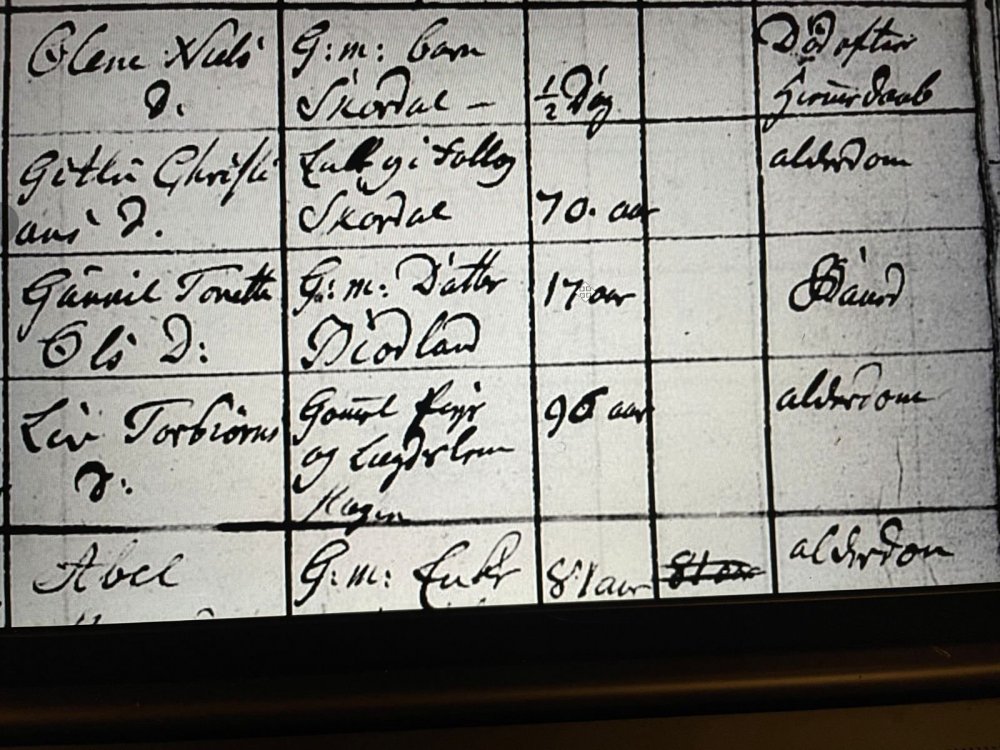 Olene Niels
D.
G: m: barn
Skordal —
1/2 Dag
Død efter
hiemedaab
Githe Christi
ans D.
Enke gift Follog
Skordal
70. aar
alderdom
Gunnil Tonette
Ols D:
G: m: Datter
Diødland
17 aar
Liv Torbiørns
D:
Gaml Pige
og Lægdslem
Hagen
96 aar
alderdom
Abel
G: m: Enke
81 aar
81 aar
alderdom